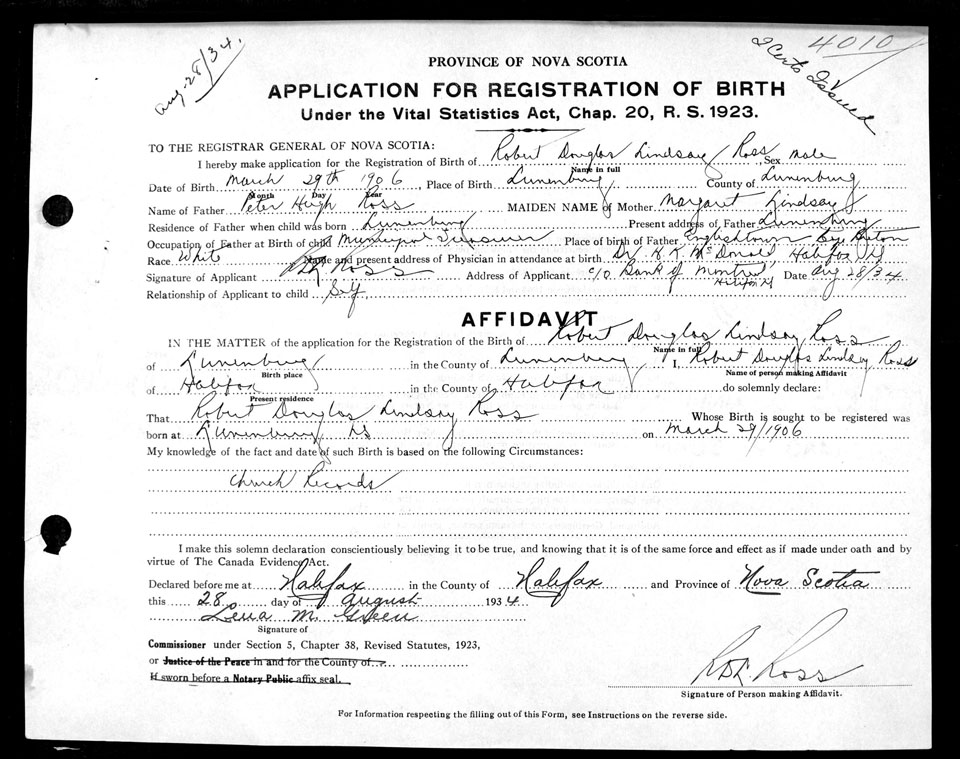 Aug. 28/34.
4010
2 Certs Issued
PROVINCE OF NOVA SCOTIA
APPLICATION FOR REGISTRATION OF BIRTH
Under the Vital Statistics Act, Chap. 20, R. S. 1923.
TO THE REGISTRAR GENERAL OF NOVA SCOTIA:
I hereby make application for the Registration of Birth of Robert Douglas Lindsay Ross Sex Male
Name in full
Date of Birth March 29th 1906, Place of Birth Lunenburg County of Lunenburg
Month Day Year
Name of Father Peter Hugh Ross MAIDEN NAME of Mother Margaret Lindsay
Residence of Father when child was born Lunenburg Present address of Father Lunenburg
Occupation of Father at Birth of child Municipal Treasurer Place of birth of Father Englishtown Cape Breton
Race White Name and present address of Physician in attendance at birth Dr. H. K. McDonald Halifax NS
Signature of Applicant RDL Ross Address of Applicant c/o Bank of Montreal Date Aug 28/34
Halifax
Relationship of Applicant to child Self
AFFIDAVIT
IN THE MATTER of the application for the Registration of the Birth of Robert Douglas Lindsay Ross
Name in full
of Lunenburg in the County of Lunenburg I, Robert Douglas Lindsay Ross
Birth place Name of person making Affidavit
of Halifax in the County of Halifax do solemnly declare:
Present residence
That Robert Douglas Lindsay Ross Whose Birth is sought to be registered was
born at Lunenburg NS on March 29/1906
My knowledge of the fact and date of such Birth is based on the following Circumstances:
Church Records
I make this solemn declaration conscientiously believing it to be true, and knowing that it is of the same force and effect as if made under oath and by
virtue of The Canada Evidence Act.
Declared before me at Halifax in the County of Halifax and Province of Nova Scotia
this 28 day of August 1934
Lena M. Green
Signature of
Commissioner under Section 5, Chapter 38, Revised Statutes, 1923,
or Justice of the Peace in and for the County of
If sworn before a Notary Public affix seal.
RDL Ross
Signature of Person making Affidavit.
For Information respecting the filling out of this Form, see Instructions on the reverse side.